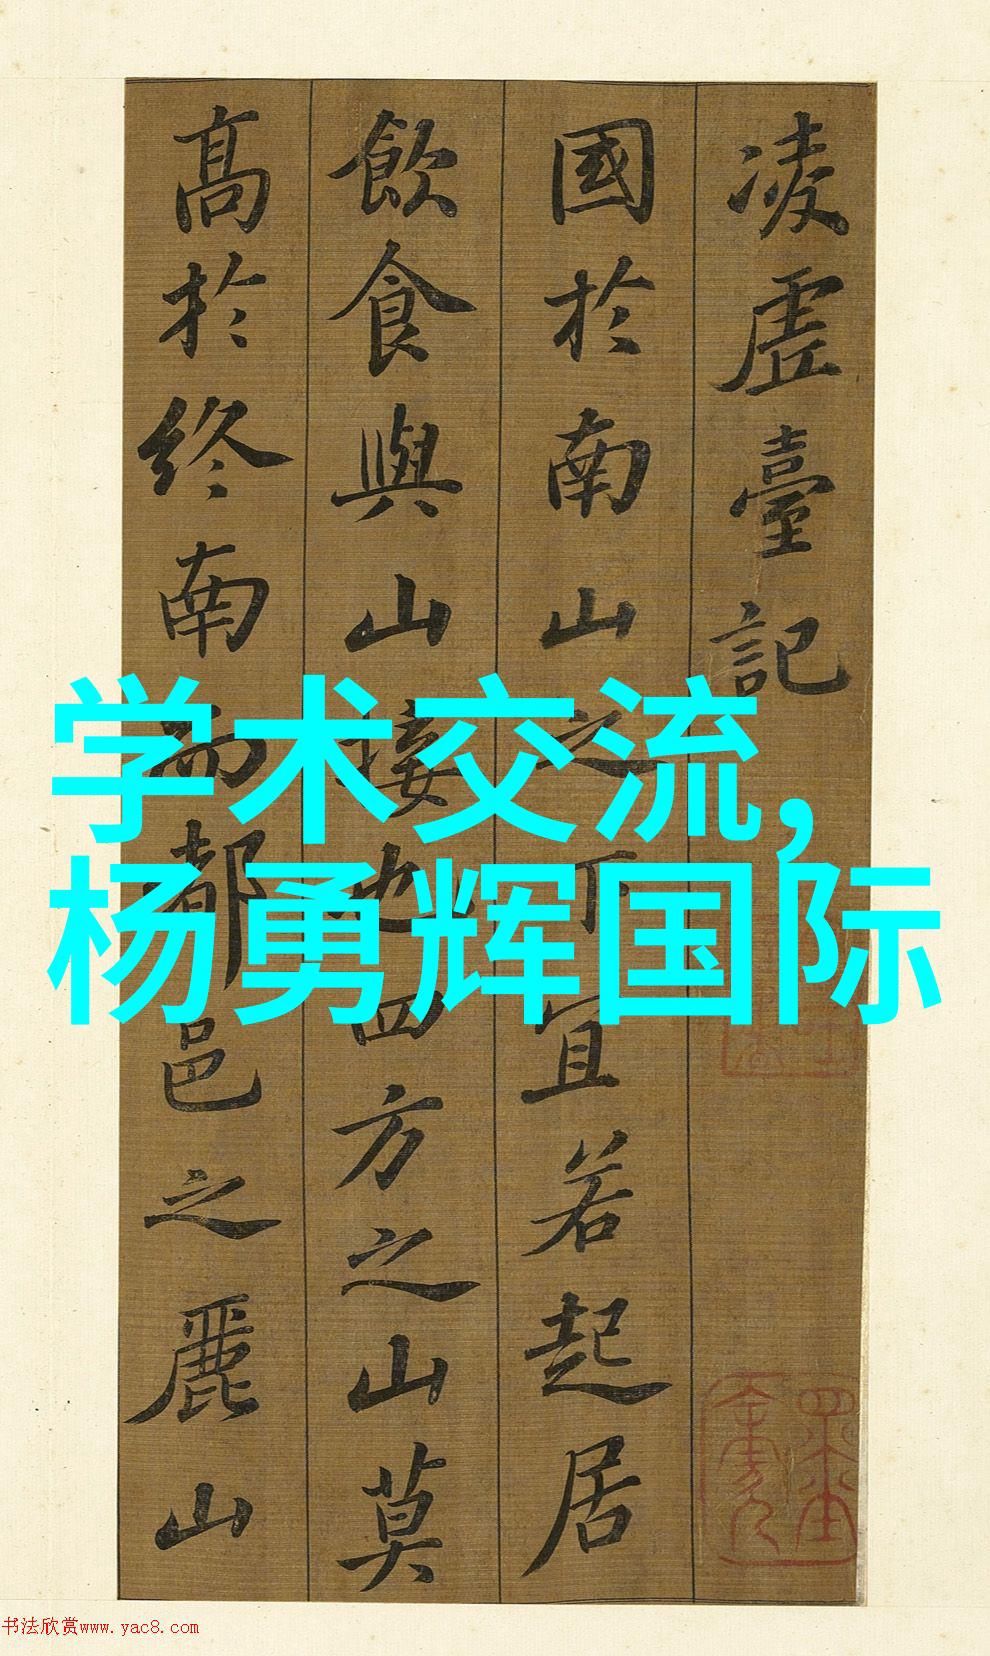 凌虚臺記
國於南山之下宜若起居
飲食與山接也四方之山莫
高於終南而都邑之麗山
学术交流,
杨勇辉国际
书法欣赏www.yac8.com